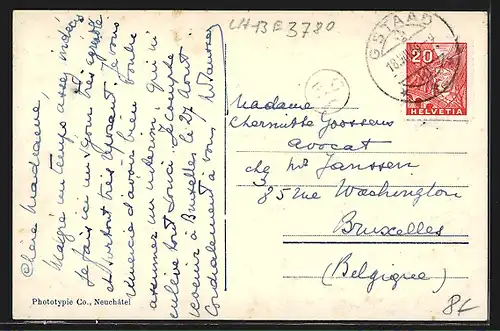 LH 13 E 3780
GSTAAD
20
HELVETIA
Chère Madame,
Malgré un temps assez indécis
je fais ici un séjour très agréable
et surtout très reposant. Je vous
remercie d'avoir bien voulu
assumer un intérim qui m'
enlève tout souci. Je compte
revenir à Bruxelles le 27 Août.
Cordialement à vous
Madame
Chernitte Goossens
Avocat
chez Me Janssen
85 rue Washington
Bruxelles
(Belgique)
Phototypie Co., Neuchâtel